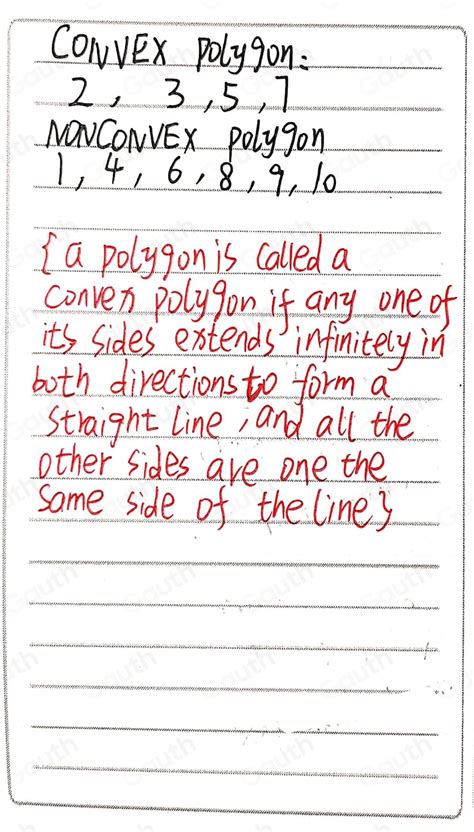 CONVEX polygon:
2, 3, 5, 7
NONCONVEX polygon
1, 4, 6, 8, 9, 10
{ a polygon is called a
convex polygon if any one of
its sides extends infinitely in
both directions to form a
straight line, and all the
other sides are one the
same side of the line}